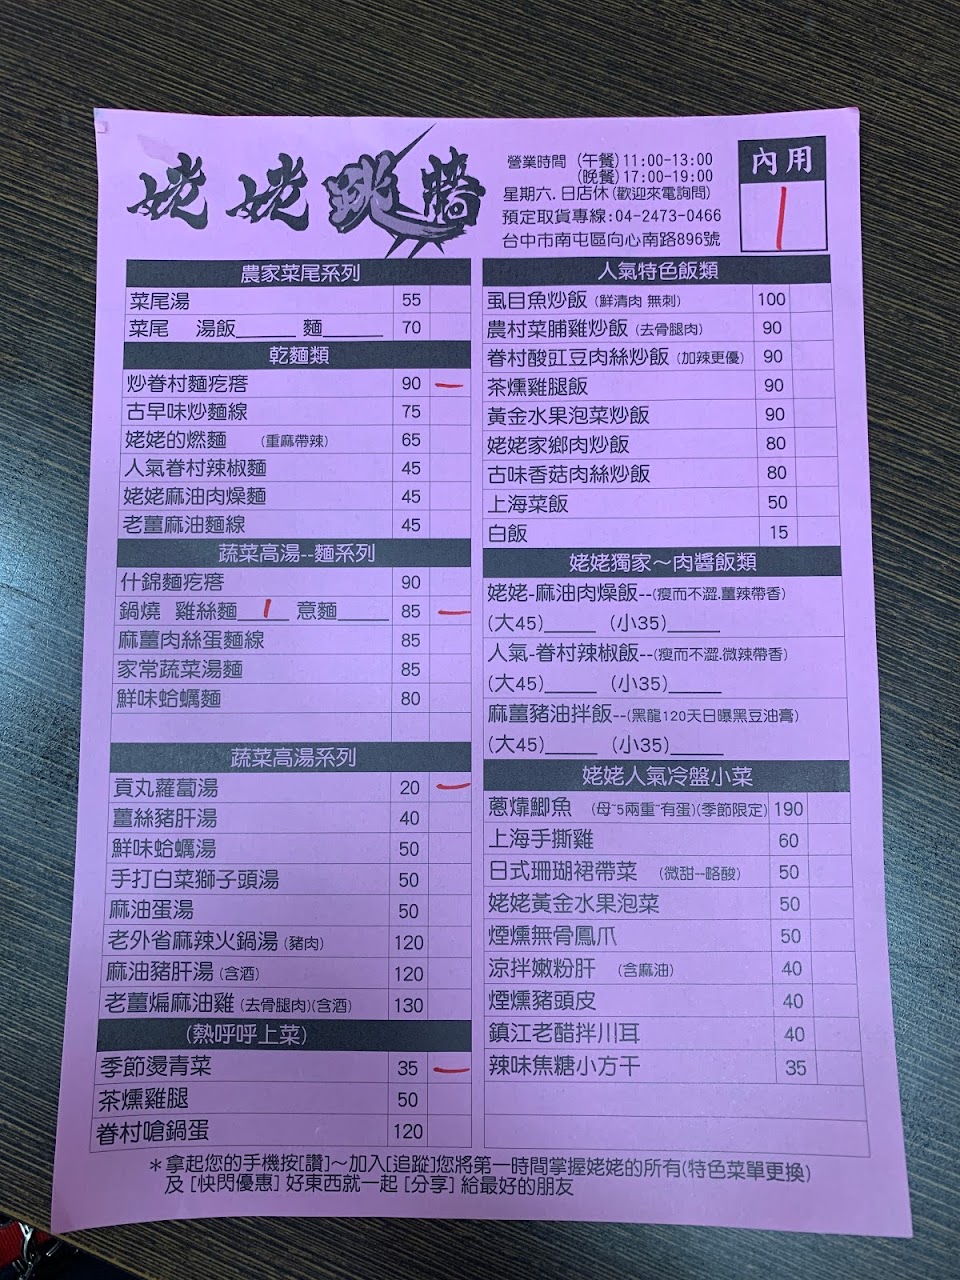 姥姥跳牆
營業時間 (午餐)11:00-13:00
(晚餐)17:00-19:00
星期六.日店休(歡迎來電詢問)
預定取貨專線:04-2473-0466
台中市南屯區向心南路896號
內用
1
農家菜尾系列
菜尾湯 55
菜尾 湯飯______ 麵______ 70
乾麵類
炒眷村麵疙瘩 90 一
古早味炒麵線 75
姥姥的燃麵 (重麻帶辣) 65
人氣眷村辣椒麵 45
姥姥麻油肉燥麵 45
老薑麻油麵線 45
蔬菜高湯--麵系列
什錦麵疙瘩 90
鍋燒 雞絲麵__1__ 意麵_____ 85 一
麻薑肉絲蛋麵線 85
家常蔬菜湯麵 85
鮮味蛤蠣麵 80
蔬菜高湯系列
貢丸蘿蔔湯 20 一
薑絲豬肝湯 40
鮮味蛤蠣湯 50
手打白菜獅子頭湯 50
麻油蛋湯 50
老外省麻辣火鍋湯(豬肉) 120
麻油豬肝湯(含酒) 120
老薑煸麻油雞(去骨腿肉)(含酒) 130
(熱呼呼上菜)
季節燙青菜 35 一
茶燻雞腿 50
眷村嗆鍋蛋 120
人氣特色飯類
虱目魚炒飯(鮮清肉 無刺) 100
農村菜脯雞炒飯(去骨腿肉) 90
眷村酸豇豆肉絲炒飯(加辣更優) 90
茶燻雞腿飯 90
黃金水果泡菜炒飯 90
姥姥家鄉肉炒飯 80
古味香菇肉絲炒飯 80
上海菜飯 50
白飯 15
姥姥獨家～肉醬飯類
姥姥-麻油肉燥飯--(瘦而不澀.薑辣帶香)
(大45)_____ (小35)_____
人氣-眷村辣椒飯--(瘦而不澀.微辣帶香)
(大45)_____ (小35)_____
麻薑豬油拌飯--(黑龍120天日曝黑豆油膏)
(大45)_____ (小35)_____
姥姥人氣冷盤小菜
蔥㸆鯽魚 (母~5兩重~有蛋)(季節限定) 190
上海手撕雞 60
日式珊瑚裙帶菜 (微甜--略酸) 50
姥姥黃金水果泡菜 50
煙燻無骨鳳爪 50
涼拌嫩粉肝 (含麻油) 40
煙燻豬頭皮 40
鎮江老醋拌川耳 40
辣味焦糖小方干 35
＊拿起您的手機按[讚]～加入[追蹤]您將第一時間掌握姥姥的所有(特色菜單更換)
及 [快閃優惠] 好東西就一起 [分享] 給最好的朋友